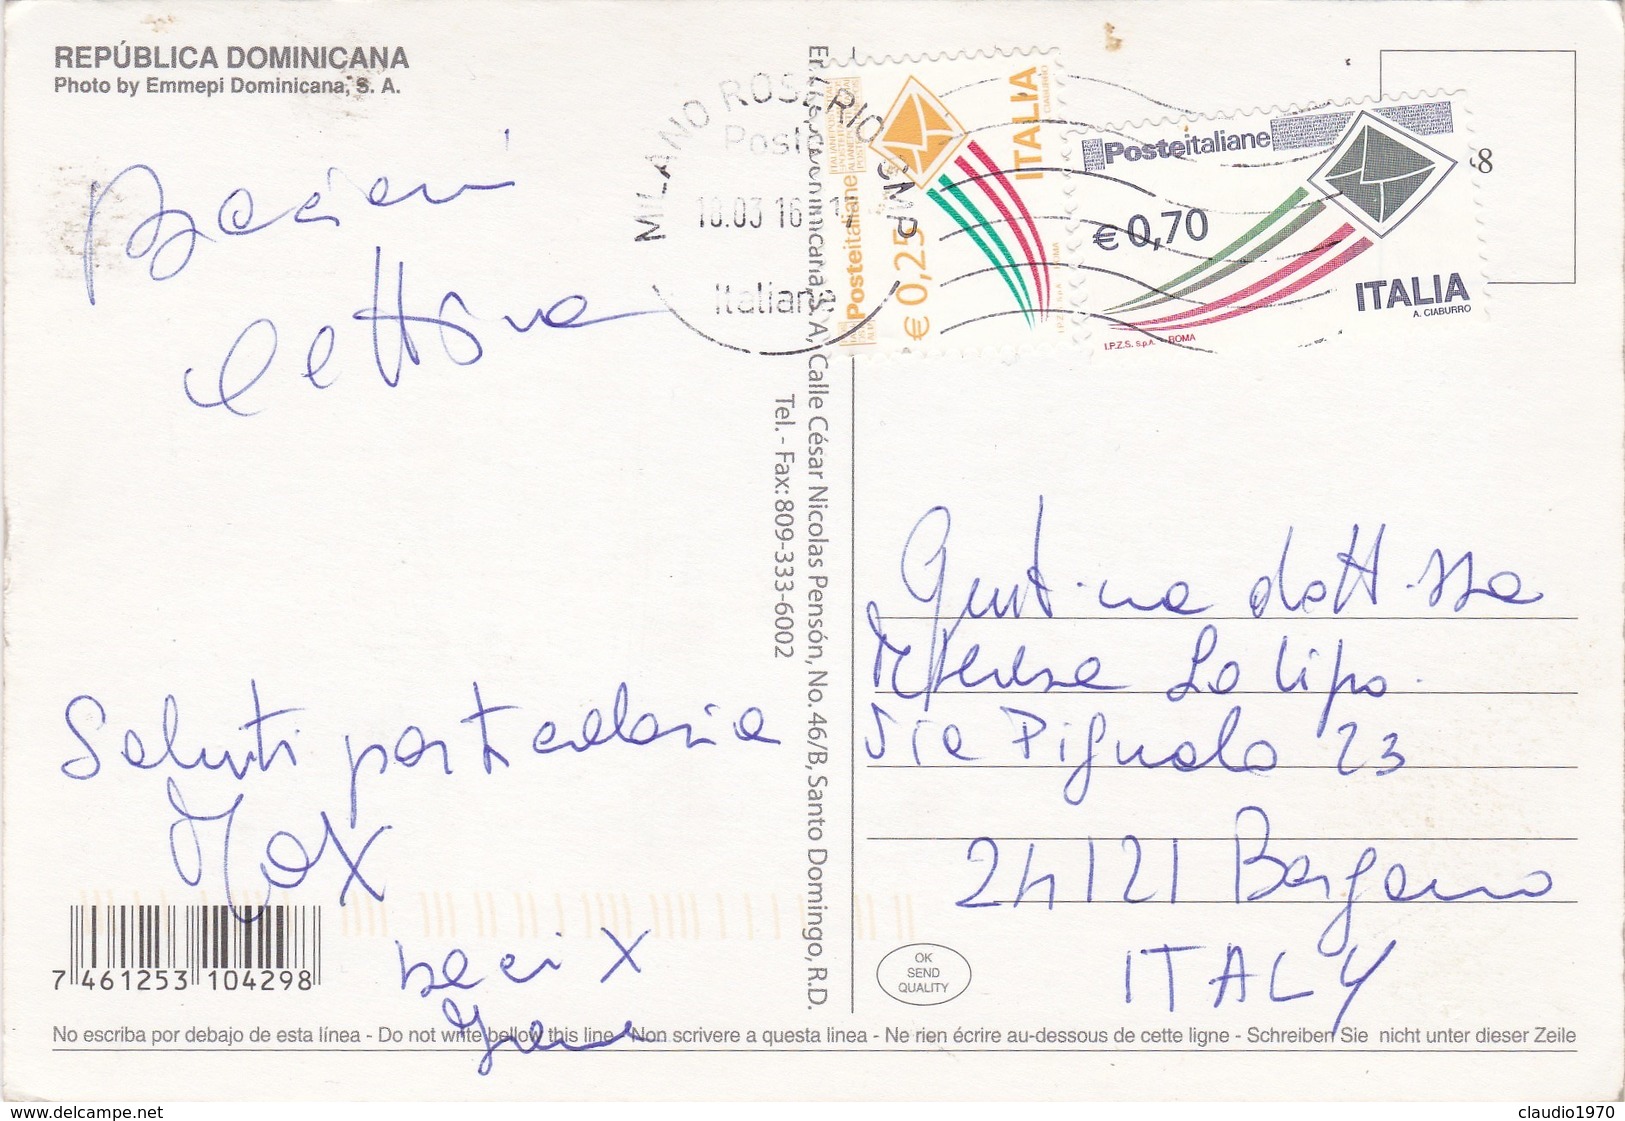 REPÚBLICA DOMINICANA
Photo by Emmepi Dominicana, S. A.
Bacioni
Saluti portcalazia
Max
baci X
7 461253 104298
No escriba por debajo de esta línea - Do not write bellow this line - Non scrivere a questa linea - Ne rien écrire au-dessous de cette ligne - Schreiben Sie nicht unter dieser Zeile
Dominicana, S. A, Calle César Nicolas Pensón, No. 46/B, Santo Domingo, R.D.
Tel. - Fax: 809-333-6002
MILANO ROSERIO CMP
Poste
18.03 16
Italiane
Posteitaliane
€ 0,25
ITALIA
A. CIABURRO
I.P.Z.S. S.p.A. - ROMA
Posteitaliane
€ 0,70
ITALIA
A. CIABURRO
I.P.Z.S. S.p.A. - ROMA
8
Gent.ma dott.ssa
Teresa
Via Pignolo 23
24121 Bergamo
ITALY
OK
SEND
QUALITY
www.delcampe.net
claudio1970